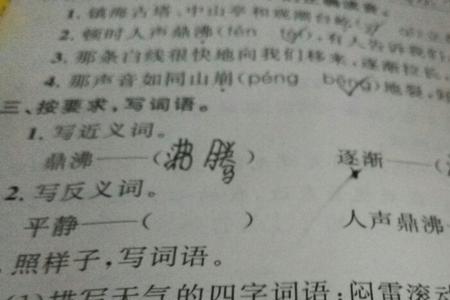 1. 镇海古塔、中山亭和观潮台屹(
2. 顿时人声鼎沸(fèn fèi), 有人告诉我们
3. 那条白线很快地向我们移来, 逐渐拉长,
4. 那声音如同山崩(péng bēng)地裂, 好
三、按要求, 写词语。
1. 写近义词。
鼎沸——(沸腾) 逐渐——(
2. 写反义词。
平静——( ) 人声鼎沸
照样子, 写词语。
(1)描写天气的四字词语: 闷雷滚动